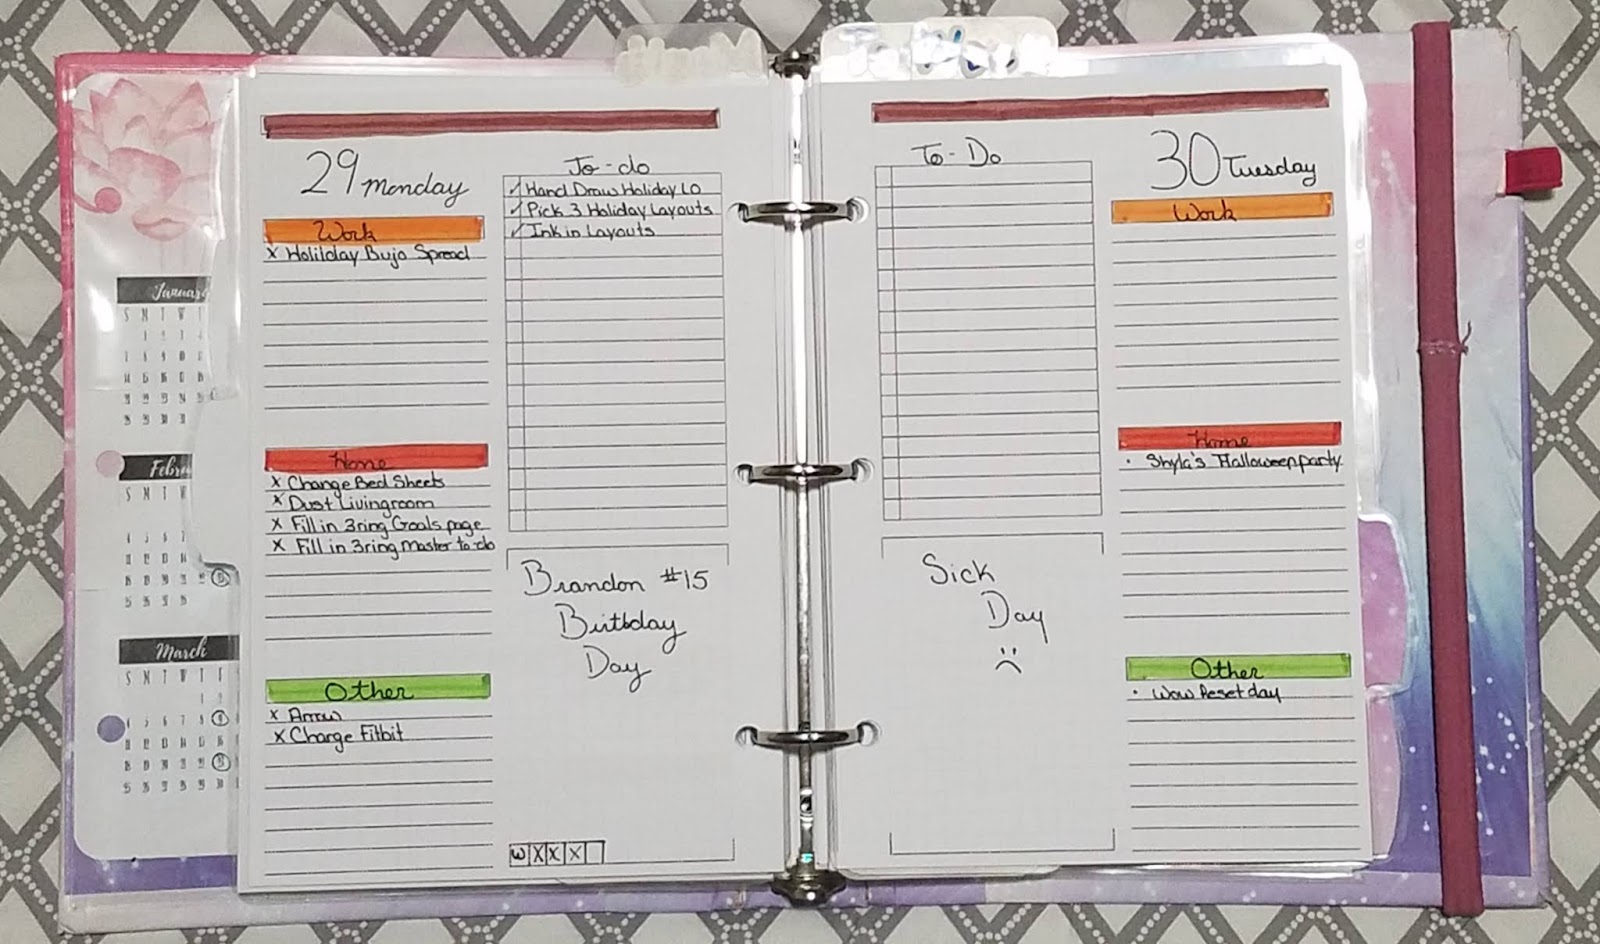 29 Monday
To-do
✓ Hand Draw Holiday LO
✓ Pick 3 Holiday Layouts
✓ Ink in Layouts
Work
x Holilday Bujo Spread
Home
x Change Bed Sheets
x Dust Livingroom
x Fill in 3ring Goals page
x Fill in 3ring master to-do
Other
x Arrow
x Charge Fitbit
Brandon #15
Birthday
Day
W X X X
To-Do
30 Tuesday
Work
Home
· Shyla's Halloween party
Other
· Wow Reset day
Sick
Day
January
S M T W T
Febru
S M T W T
March
S M T W T F